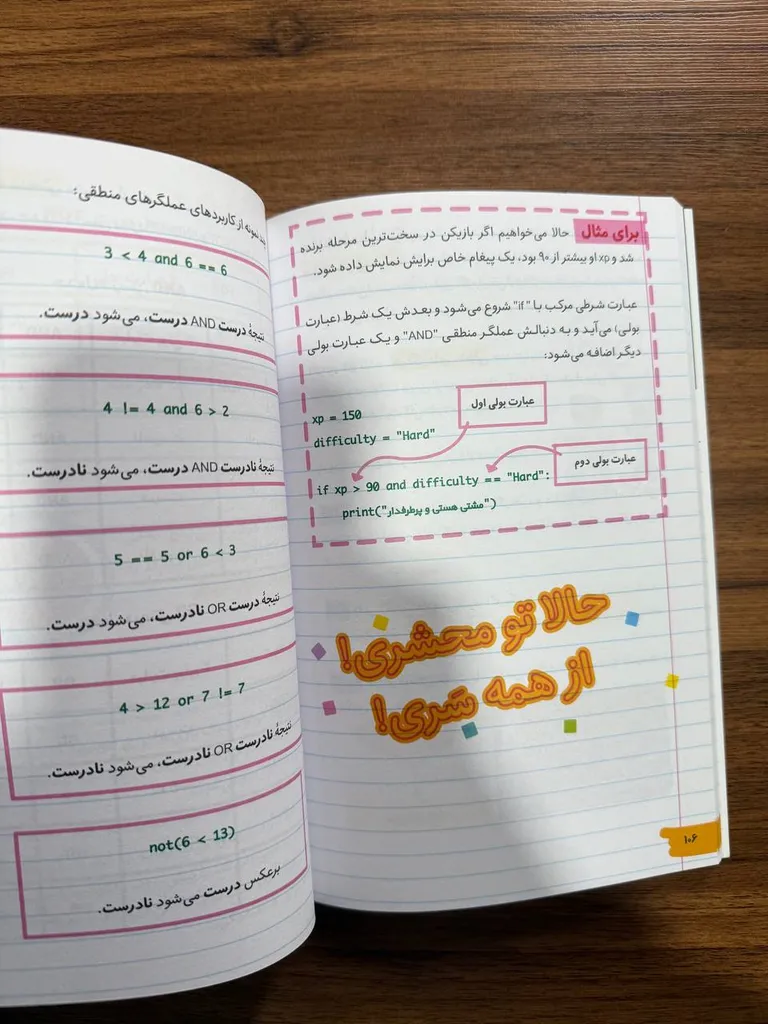 نمونه از کاربردهای عملگرهای منطقی:
3 < 4 and 6 == 6
نتیجهٔ درست AND درست، می‌شود درست.
4 != 4 and 6 > 2
نتیجهٔ نادرست AND درست، می‌شود نادرست.
5 == 5 or 6 < 3
نتیجهٔ درست OR نادرست، می‌شود درست.
4 > 12 or 7 != 7
نتیجهٔ نادرست OR نادرست، می‌شود نادرست.
not(6 < 13)
برعکس درست می‌شود نادرست.
برای مثال حالا می‌خواهیم اگر بازیکن در سخت‌ترین مرحله برنده
شد و xp او بیشتر از ۹۰ بود، یک پیغام خاص برایش نمایش داده شود.
عبارت شرطی مرکب با "if" شروع می‌شود و بعدش یک شرط (عبارت
بولی) می‌آید و به دنبالش عملگر منطقی "AND" و یک عبارت بولی
دیگر اضافه می‌شود:
عبارت بولی اول
xp = 150
difficulty = "Hard"
عبارت بولی دوم
if xp > 90 and difficulty == "Hard":
print("مشتی هستی و پرطرفدار")
حالا تو محشری!
از همه سَری!
۱۰۶